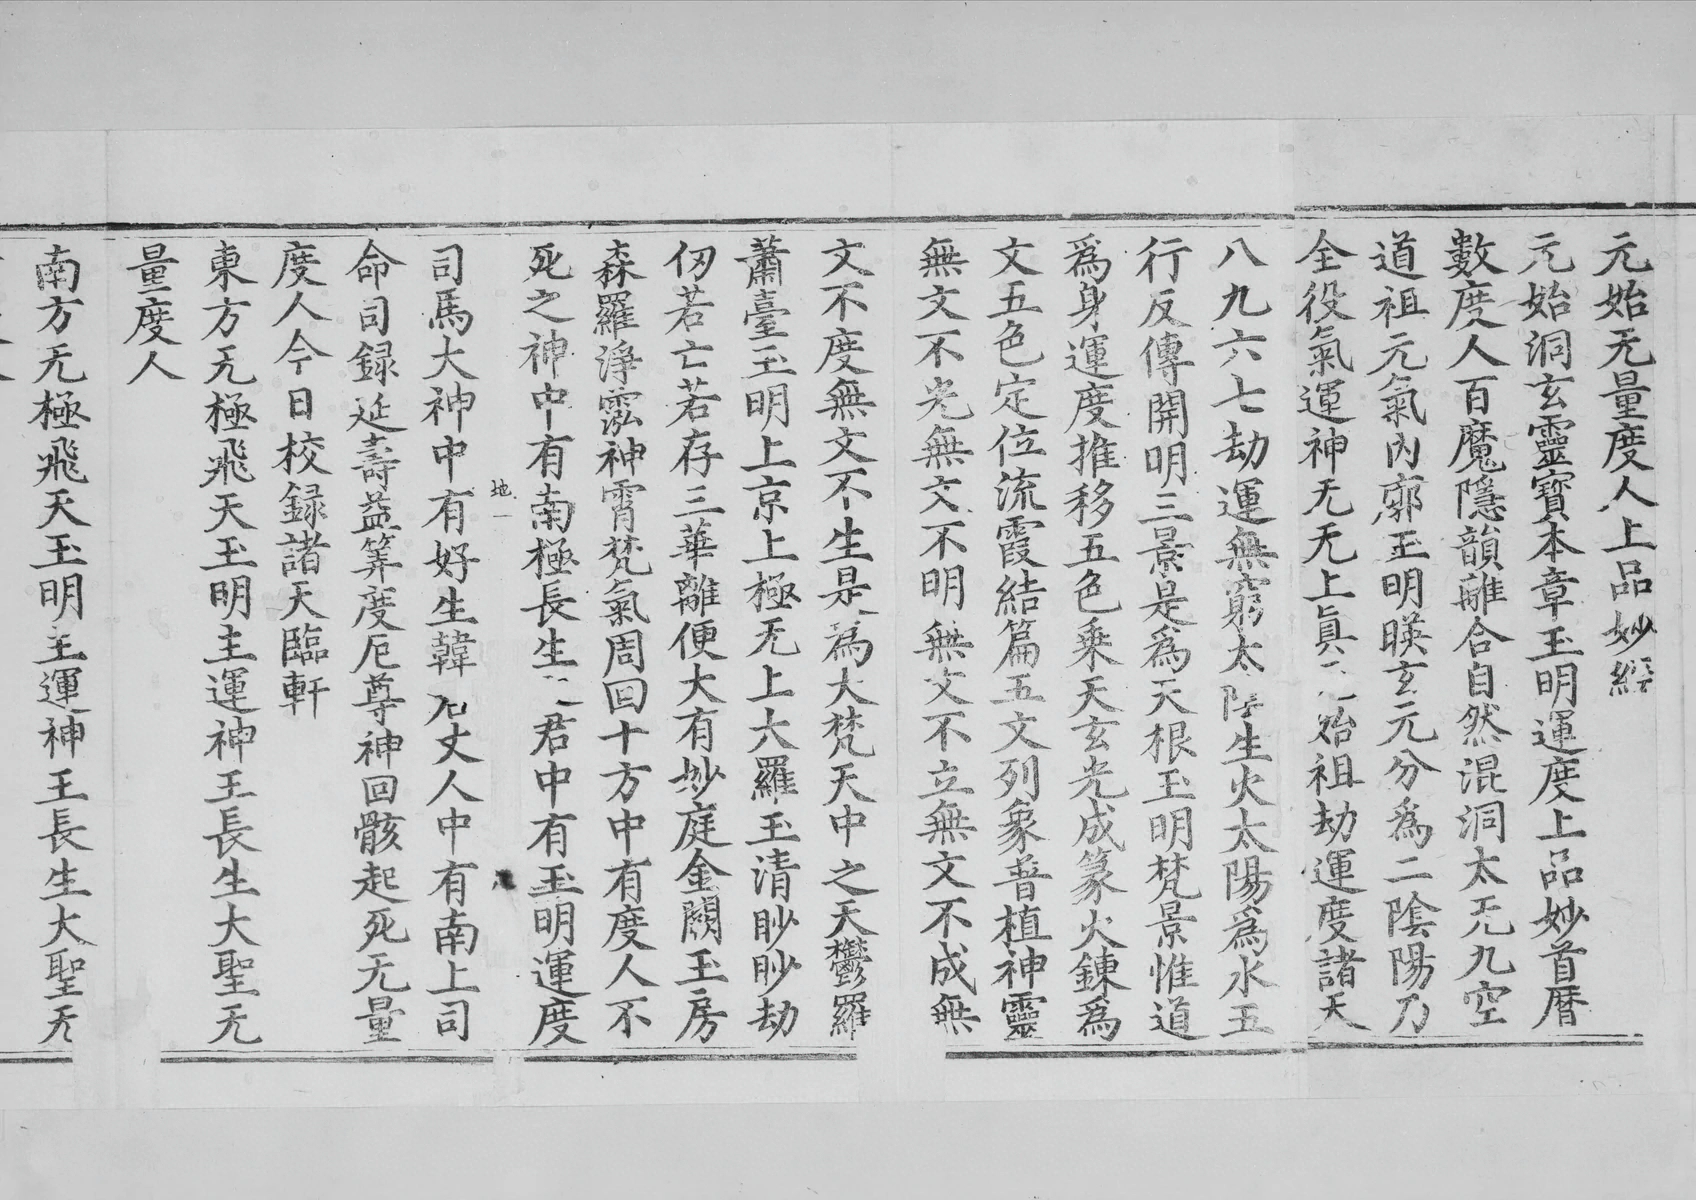 元始无量度人上品妙經
元始洞玄靈寶本章玉明運度上品妙首曆
數度人百魔隱韻離合自然混洞太无九空
道祖元氣內廓玉明暎玄元分為二陰陽乃
全役氣運神无无上眞元始祖劫運度諸天
八九六七劫運無窮太陰生火太陽為水五
行反傳開明三景是為天根玉明梵景惟道
為身運度推移五色乘天玄光成篆火鍊為
文五色定位流霞結篇五文列象普植神靈
無文不光無文不明無文不立無文不成無
文不度無文不生是為大梵天中之天鬱羅
蕭臺玉明上京上極无上大羅玉清眇眇劫
仞若亡若存三華離便大有妙庭金闕玉房
森羅淨泓神霄梵氣周回十方中有度人不
死之神中有南極長生之君中有玉明運度
地一
司馬大神中有好生韓君丈人中有南上司
命司録延壽益筭度厄尊神回骸起死无量
度人今日校録諸天臨軒
東方无極飛天玉明主運神王長生大聖无
量度人
南方无極飛天玉明主運神王長生大聖无